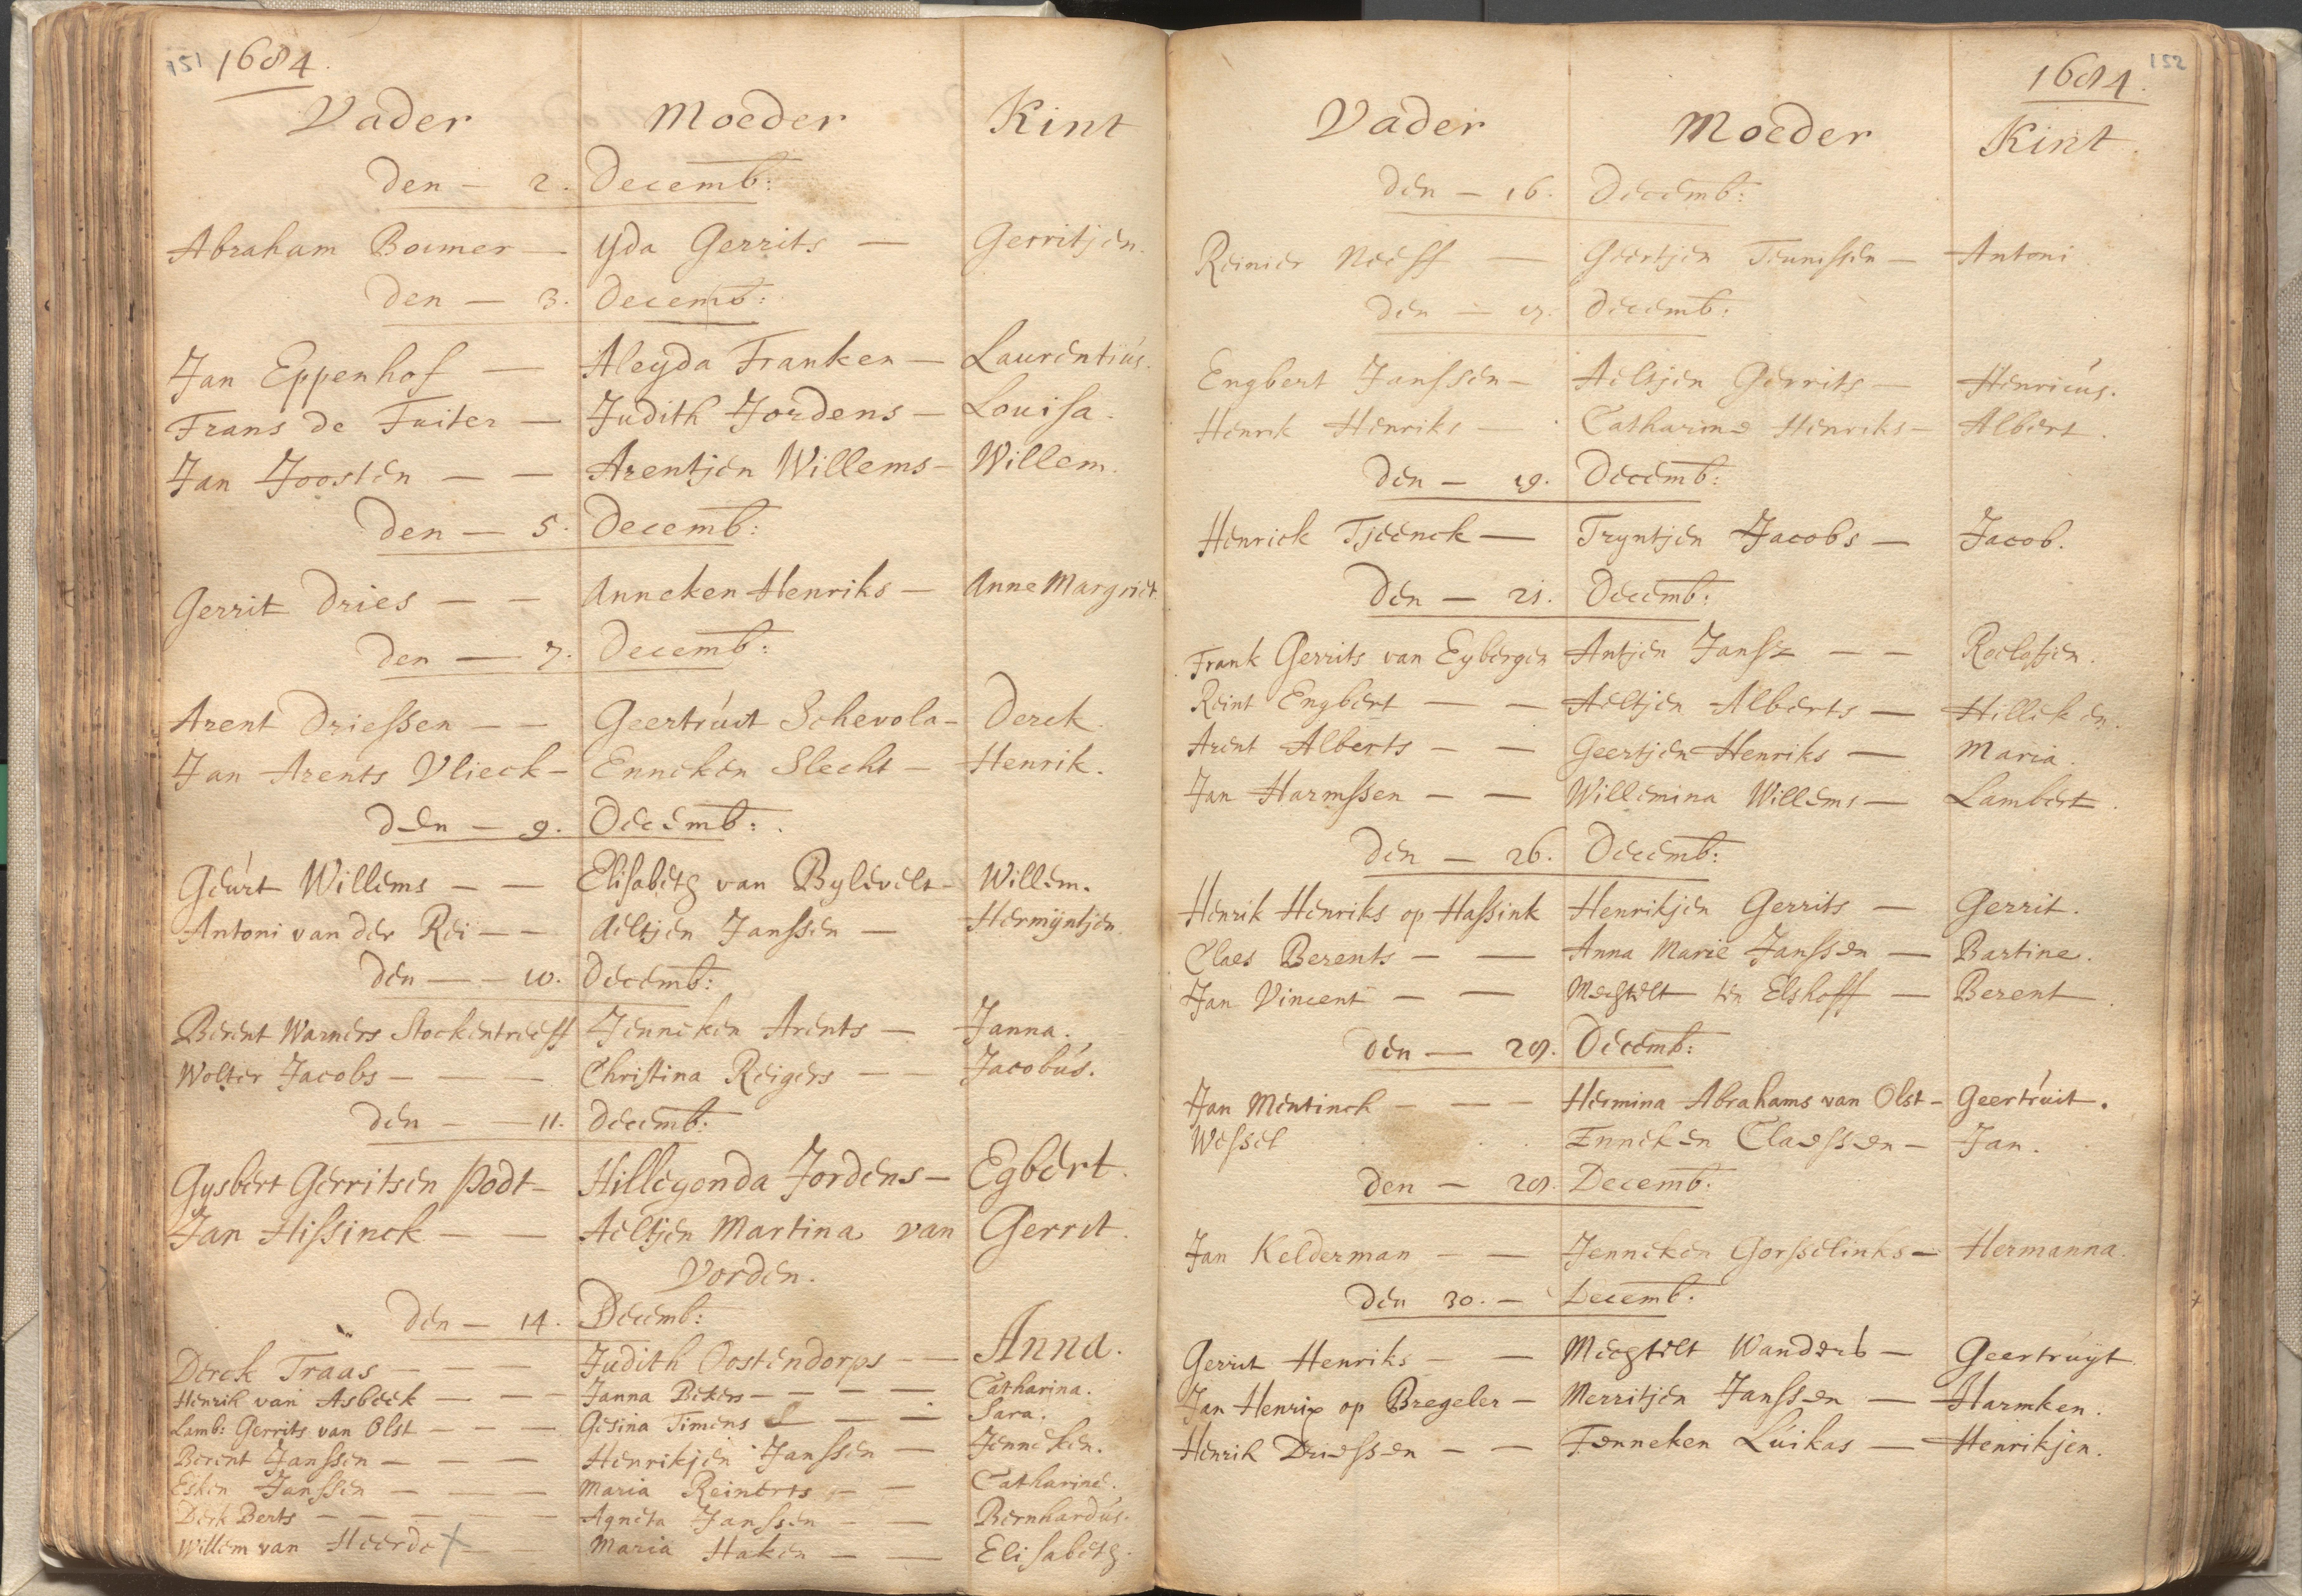 151 1684.
Vader Moeder Kint
Den — 2. Decemb:
Abraham Boumer — Yda Gerrits — Gerritjen.
Den — 3. Decemb:
Jan Eppenhof — Aleyda Franken — Laurentius.
Frans de Fuiter — Judith Jordens — Louisa.
Jan Joosten — — Arentjen Willems — Willem.
Den — 5. Decemb:
Gerrit Dries — — Anneken Henriks — Anne Margriet
Den — 7. Decemb:
Arent Driessen — — Geertruit Schevola — Derck.
Jan Arents Vlieck — Enneken Slecht — Henrik.
Den — 9. Decemb:
Geurt Willems — — Elisabeth van Bylevelt — Willem.
Antoni van der Rei — — Aeltjen Janssen — Hermijntjen.
Den — — 10. Decemb:
Berent Warners Stockentreeff Jenneken Arents — Janna.
Wolter Jacobs — — — Christina Reigers — — Jacobus.
Den — — 11. Decemb:
Gysbert Gerritsen Podt — Hillegonda Jordens — Egbert.
Jan Hissinck — — Aeltjen Martina van Gerrit.
Vorden.
Den — 14. Decemb:
Derck Traas — — — Judith Oostendorps — Anna.
Henrik van Asbeek — — — Janna Bekers — — — — Catharina.
Lamb: Gerrits van Olst — — — Gesina Timens — — Sara.
Berent Janssen — — — Henrikjen Janssen — Jenneken.
Esken Janssen — — — Maria Reinerts — — Catharine.
Derk Berts — — — — — Agneta Janssen — — Bernhardus.
Willem van Heerde — — Maria Haken — — Elisabeth.
1684. 152
Vader Moeder Kint.
Den — 16. Decemb:
Reinier Neeff — Geertjen Teunissen — Antoni.
Den — 17. Decemb:
Engbert Janssen — Aeltjen Gerrits — Henricus.
Henrik Henriks — Catharina Henriks — Albert.
Den — 19. Decemb:
Henrick Tjeenck — Tryntjen Jacobs — Jacob.
Den — 21. Decemb:
Frank Gerrits van Eybergen Antjen Jansz — — Roelofjen.
Reint Engbert — — Aeltjen Alberts — Hilleken.
Arent Alberts — — Geertjen Henriks — Maria.
Jan Harmssen — — Willemina Willems — Lambert.
Den — 26. Decemb:
Henrik Henriks op Hassink Henrikjen Gerrits — Gerrit.
Claes Berents — — Anna Marie Janssen — Bartine.
Jan Vincent — — Mechtelt ten Elshoff — Berent.
Den — 28. Decemb:
Jan Mentinck — — — Hermina Abrahams van Olst — Geertruit.
Wessel Enneken Claessen — Jan.
Den — 29. Decemb:
Jan Kelderman — — Jenneken Gorsselinks — Hermanna.
Den 30. — Decemb:
Gerrit Henriks — — Mechtelt Wanders — Geertruyt.
Jan Henrix op Bregeler — Merritjen Janssen — Harmken.
Henrik Driessen — — Fenneken Luikas — Henrikjen.